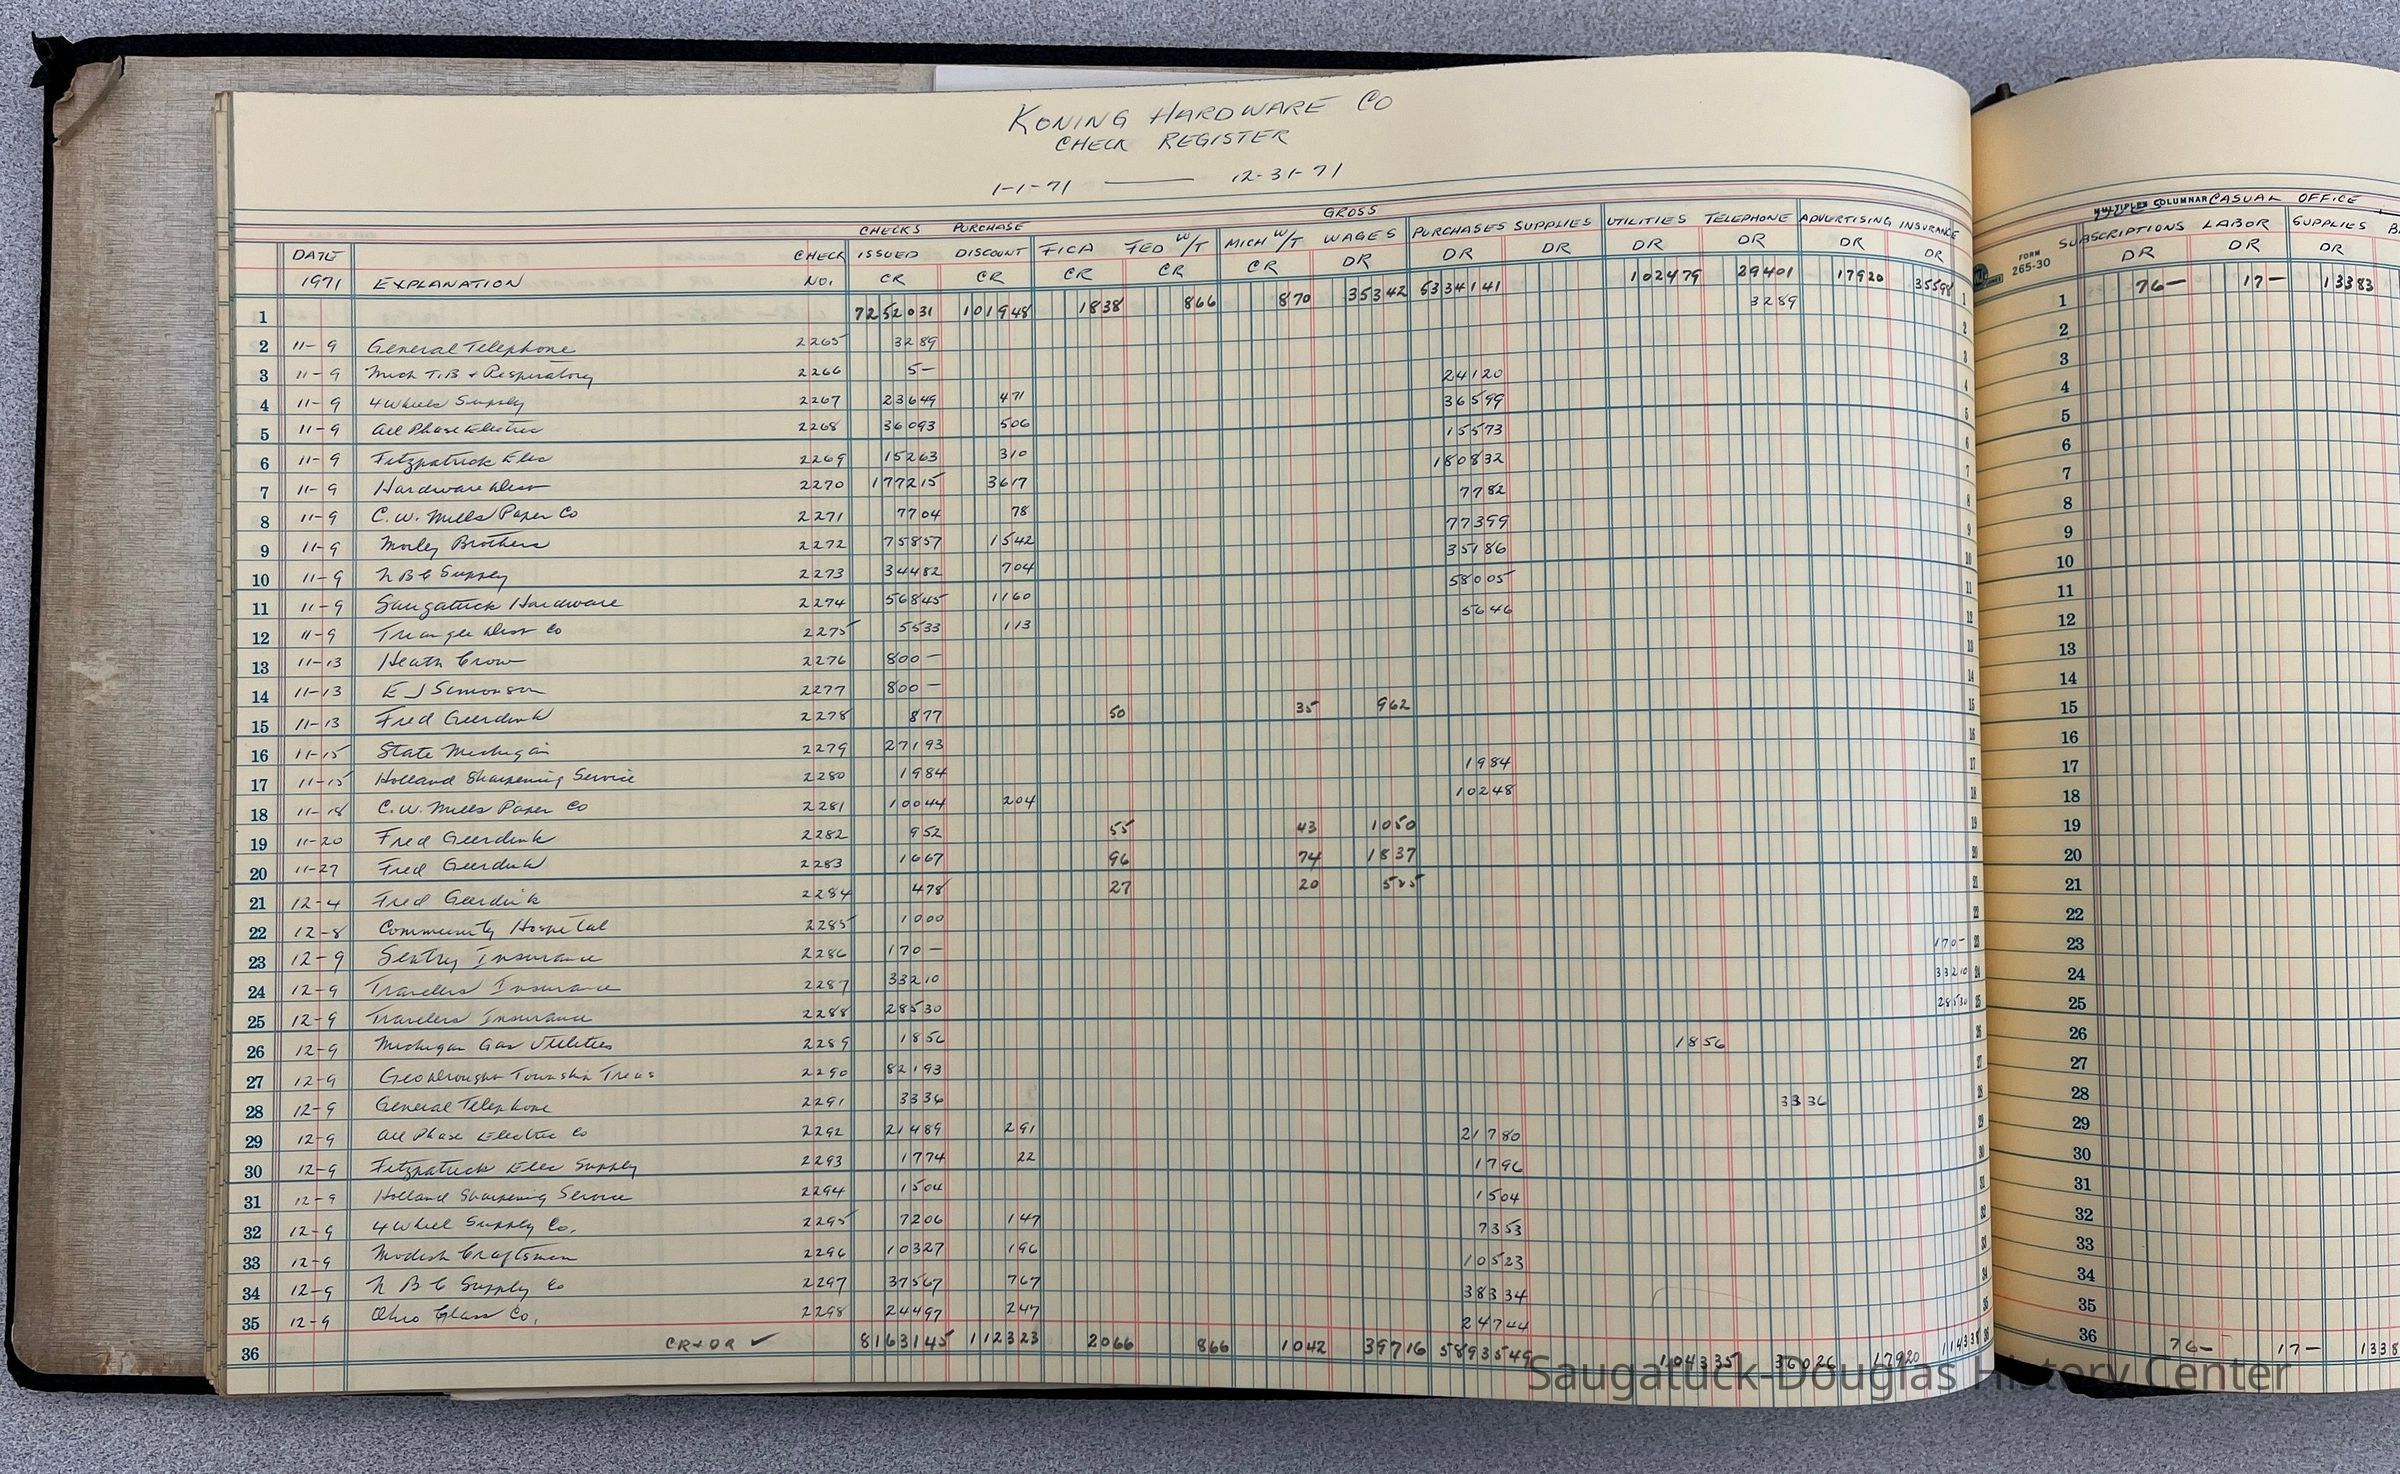 KONING HARDWARE CO
CHECK REGISTER
1-1-71 — 12-31-71
CHECKS PURCHASE GROSS
DATE CHECK ISSUED DISCOUNT FICA FED W/T MICH W/T WAGES PURCHASES SUPPLIES UTILITIES TELEPHONE ADVERTISING INSURANCE
1971 EXPLANATION NO. CR CR CR CR CR DR DR DR DR DR DR DR
1 7252031 101948 1838 866 870 35342 5334141 102479 29401 17920 35598 1
2 11-9 General Telephone 2265 3289 3289 2
3 11-9 Mich T.B + Respiratory 2266 5- 3
4 11-9 4 Wheel Supply 2267 23649 471 24120 4
5 11-9 All Phase Electric 2268 36093 506 36599 5
6 11-9 Fitzpatrick Elec 2269 15263 310 15573 6
7 11-9 Hardware Dist 2270 177215 3617 180832 7
8 11-9 C.W. Mills Paper Co 2271 7704 78 7782 8
9 11-9 Morley Brothers 2272 75857 1542 77399 9
10 11-9 N B C Supply 2273 34482 704 35186 10
11 11-9 Saugatuck Hardware 2274 56845 1160 58005 11
12 11-9 Triangle Dist Co 2275 5533 113 5646 12
13 11-13 Heath Crow 2276 800- 13
14 11-13 E J Simonson 2277 800- 14
15 11-13 Fred Geerdink 2278 877 50 35 962 15
16 11-15 State Michigan 2279 27193 16
17 11-15 Holland Sharpening Service 2280 1984 1984 17
18 11-18 C.W. Mills Paper Co 2281 10044 204 10248 18
19 11-20 Fred Geerdink 2282 952 55 43 1050 19
20 11-27 Fred Geerdink 2283 1667 96 74 1837 20
21 12-4 Fred Geerdink 2284 478 27 20 525 21
22 12-8 Community Hospital 2285 1000 22
23 12-9 Sentry Insurance 2286 170- 170- 23
24 12-9 Travelers Insurance 2287 33210 33210 24
25 12-9 Travelers Insurance 2288 28530 28530 25
26 12-9 Michigan Gas Utilities 2289 1856 1856 26
27 12-9 Township Treas 2290 82193 27
28 12-9 General Telephone 2291 3336 3336 28
29 12-9 All Phase Electric Co 2292 21489 291 21780 29
30 12-9 Fitzpatrick Elec Supply 2293 1774 22 1796 30
31 12-9 Holland Sharpening Service 2294 1504 1504 31
32 12-9 4 Wheel Supply Co. 2295 7206 147 7353 32
33 12-9 Modish Craftsmen 2296 10327 196 10523 33
34 12-9 N B C Supply Co 2297 37567 767 38334 34
35 12-9 Ohio Glass Co. 2298 24497 247 24744 35
36 CR+DR ✓ 8163145 112323 2066 866 1042 39716 5893549 104335 36026 17920 114338 36
MULTIPLEX COLUMNAR CASUAL OFFICE
FORM 265-30
SUBSCRIPTIONS LABOR SUPPLIES
DR DR DR
1 76- 17- 13383
2
3
4
5
6
7
8
9
10
11
12
13
14
15
16
17
18
19
20
21
22
23
24
25
26
27
28
29
30
31
32
33
34
35
36 76- 17- 1338
Saugatuck-Douglas History Center